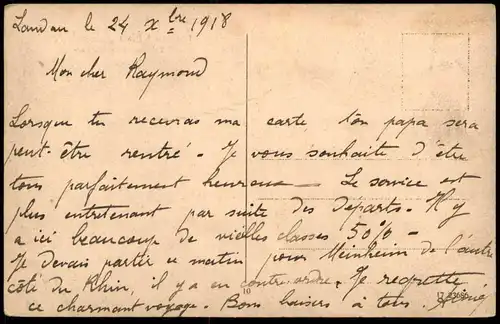 Landau le 24 Xbre 1918
Mon cher Raymond
Lorsque tu recevras ma carte ton papa sera
peut-être rentré - Je vous souhaite d'être
tous parfaitement heureux - Le service est
plus entretenant par suite des departs - Il y
a ici beaucoup de vieilles classes 50% -
Je devais partir ce matin pour Meinheim de l'autre
côté du Rhin, il y a eu contre ordre. Je regrette
ce charmant voyage - Bons baisers à tous.
10